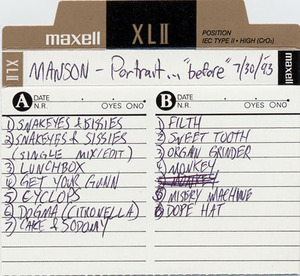 maxell
XLII
POSITION
IEC TYPE II • HIGH (CrO2)
XLII
MANSON - Portrait... "before" 7/30/93
maxell
A DATE
N.R. OYES ONO
1) SNAKEYES & SISSIES
2) SNAKEYES & SISSIES
(SINGLE MIX/EDIT)
3) LUNCHBOX
4) GET YOUR GUNN
5) CYCLOPS
6) DOGMA (CITRONELLA)
7) CAKE & SODOMY
B DATE
N.R. OYES ONO
1) FILTH
2) SWEET TOOTH
3) ORGAN GRINDER
4) MONKEY
5) MISERY MACHINE
6) DOPE HAT